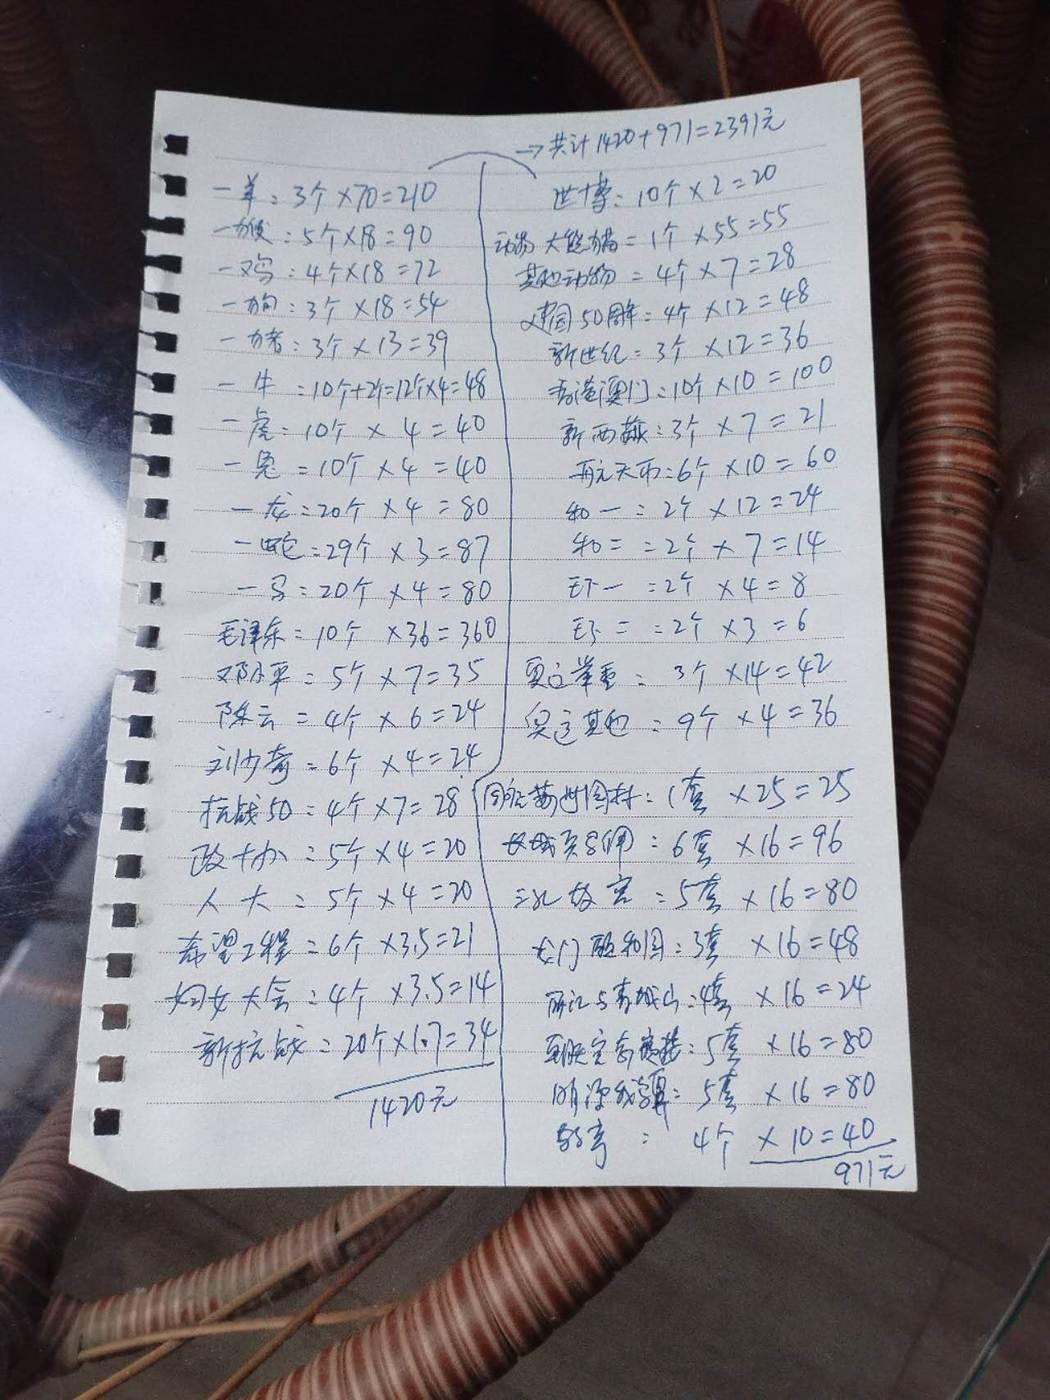 →共计1420+971=2391元
一羊:3个×70=210
一猴:5个×18=90
一鸡:4个×18=72
一狗:3个×18=54
一猪:3个×13=39
一牛:10个+2个=12个×4=48
一虎:10个×4=40
一兔=10个×4=40
一龙:20个×4=80
一蛇:29个×3=87
一马:20个×4=80
毛泽东=10个×36=360
邓小平:5个×7=35
陈云=4个×6=24
刘少奇=6个×4=24
抗战50:4个×7=28
政十办:5个×4=20
人大:5个×4=20
希望工程=6个×3.5=21
妇女大会:4个×3.5=14
新抗战:20个×1.7=34
1420元
世博:10个×2=20
动物大熊猫=1个×55=55
其他动物=4个×7=28
建国50周年:4个×12=48
新世纪:3个×12=36
香港澳门:10个×10=100
新西藏:3个×7=21
航天币:6个×10=60
和一:2个×12=24
和二:2个×7=14
环一:2个×4=8
环二:2个×3=6
奥运举重:3个×14=42
奥运其他:9个×4=36
1套×25=25
长城兵马俑:6套×16=96
三孔故宫:5套×16=80
龙门颐和园:3套×16=48
丽江与青城山:4套×16=24
5套×16=80
5套×16=80
4个×10=40
971元